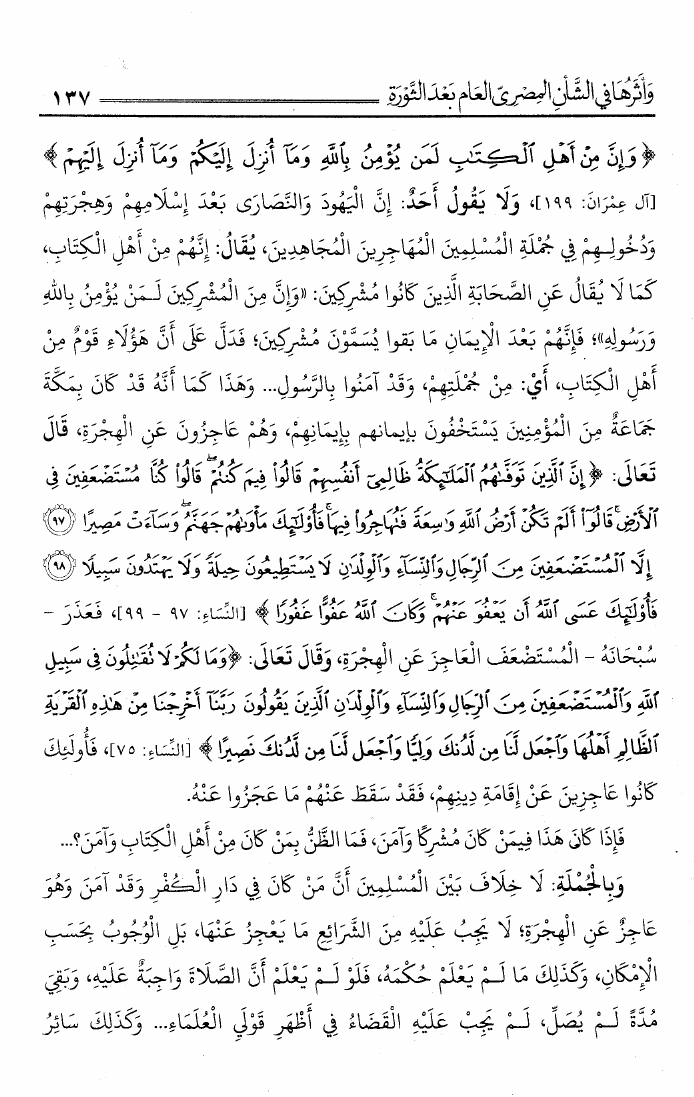 وَأَثَرُهَا فِي الشَّأْنِ المِصْرِيِّ العَامِ بَعْدَ الثَّوْرَةِ ١٣٧
﴿ وَإِنَّ مِنْ أَهْلِ ٱلْكِتَٰبِ لَمَن يُؤْمِنُ بِٱللَّهِ وَمَآ أُنزِلَ إِلَيْكُمْ وَمَآ أُنزِلَ إِلَيْهِمْ ﴾
[آل عِمْرَانَ: ١٩٩]، وَلَا يَقُولُ أَحَدٌ: إِنَّ الْيَهُودَ وَالنَّصَارَى بَعْدَ إِسْلَامِهِمْ وَهِجْرَتِهِمْ
وَدُخُولِهِمْ فِي جُمْلَةِ الْمُسْلِمِينَ الْمُهَاجِرِينَ الْمُجَاهِدِينَ، يُقَالُ: إِنَّهُمْ مِنْ أَهْلِ الْكِتَابِ،
كَمَا لَا يُقَالُ عَنِ الصَّحَابَةِ الَّذِينَ كَانُوا مُشْرِكِينَ: «وَإِنَّ مِنَ الْمُشْرِكِينَ لَمَنْ يُؤْمِنُ بِاللهِ
وَرَسُولِهِ»؛ فَإِنَّهُمْ بَعْدَ الْإِيمَانِ مَا بَقوا يُسَمَّوْنَ مُشْرِكِينَ؛ فَدَلَّ عَلَى أَنَّ هَؤُلَاءِ قَوْمٌ مِنْ
أَهْلِ الْكِتَابِ، أَيْ: مِنْ جُمْلَتِهِمْ، وَقَدْ آمَنُوا بِالرَّسُولِ... وَهَذَا كَمَا أَنَّهُ قَدْ كَانَ بِمَكَّةَ
جَمَاعَةٌ مِنَ الْمُؤْمِنِينَ يَسْتَخْفُونَ بإيمانهم بِإِيمَانِهِمْ، وَهُمْ عَاجِزُونَ عَنِ الْهِجْرَةِ، قَالَ
تَعَالَى: ﴿ إِنَّ ٱلَّذِينَ تَوَفَّىٰهُمُ ٱلْمَلَٰٓئِكَةُ ظَالِمِىٓ أَنفُسِهِمْ قَالُوا۟ فِيمَ كُنتُمْ ۖ قَالُوا۟ كُنَّا مُسْتَضْعَفِينَ فِى
ٱلْأَرْضِ ۚ قَالُوٓا۟ أَلَمْ تَكُنْ أَرْضُ ٱللَّهِ وَٰسِعَةً فَتُهَاجِرُوا۟ فِيهَا ۚ فَأُو۟لَٰٓئِكَ مَأْوَىٰهُمْ جَهَنَّمُ ۖ وَسَآءَتْ مَصِيرًا ۝٩٧
إِلَّا ٱلْمُسْتَضْعَفِينَ مِنَ ٱلرِّجَالِ وَٱلنِّسَآءِ وَٱلْوِلْدَٰنِ لَا يَسْتَطِيعُونَ حِيلَةً وَلَا يَهْتَدُونَ سَبِيلًا ۝٩٨
فَأُو۟لَٰٓئِكَ عَسَى ٱللَّهُ أَن يَعْفُوَ عَنْهُمْ ۚ وَكَانَ ٱللَّهُ عَفُوًّا غَفُورًا ﴾ [النِّسَاءِ: ٩٧ - ٩٩]، فَعَذَرَ -
سُبْحَانَهُ - الْمُسْتَضْعَفَ الْعَاجِزَ عَنِ الْهِجْرَةِ، وَقَالَ تَعَالَى: ﴿ وَمَا لَكُمْ لَا تُقَٰتِلُونَ فِى سَبِيلِ
ٱللَّهِ وَٱلْمُسْتَضْعَفِينَ مِنَ ٱلرِّجَالِ وَٱلنِّسَآءِ وَٱلْوِلْدَٰنِ ٱلَّذِينَ يَقُولُونَ رَبَّنَآ أَخْرِجْنَا مِنْ هَٰذِهِ ٱلْقَرْيَةِ
ٱلظَّالِمِ أَهْلُهَا وَٱجْعَل لَّنَا مِن لَّدُنكَ وَلِيًّا وَٱجْعَل لَّنَا مِن لَّدُنكَ نَصِيرًا ﴾ [النِّسَاءِ: ٧٥]، فَأُولَئِكَ
كَانُوا عَاجِزِينَ عَنْ إِقَامَةِ دِينِهِمْ، فَقَدْ سَقَطَ عَنْهُمْ مَا عَجَزُوا عَنْهُ.
فَإِذَا كَانَ هَذَا فِيمَنْ كَانَ مُشْرِكًا وَآمَنَ، فَمَا الظَّنُّ بِمَنْ كَانَ مِنْ أَهْلِ الْكِتَابِ وَآمَنَ؟...
وَبِالْجُمْلَةِ: لَا خِلَافَ بَيْنَ الْمُسْلِمِينَ أَنَّ مَنْ كَانَ فِي دَارِ الْكُفْرِ وَقَدْ آمَنَ وَهُوَ
عَاجِزٌ عَنِ الْهِجْرَةِ؛ لَا يَجِبُ عَلَيْهِ مِنَ الشَّرَائِعِ مَا يَعْجِزُ عَنْهَا، بَلِ الْوُجُوبُ بِحَسَبِ
الْإِمْكَانِ، وَكَذَلِكَ مَا لَمْ يَعْلَمْ حُكْمَهُ، فَلَوْ لَمْ يَعْلَمْ أَنَّ الصَّلَاةَ وَاجِبَةٌ عَلَيْهِ، وَبَقِيَ
مُدَّةً لَمْ يُصَلِّ، لَمْ يَجِبْ عَلَيْهِ الْقَضَاءُ فِي أَظْهَرِ قَوْلَيِ الْعُلَمَاءِ... وَكَذَلِكَ سَائِرُ